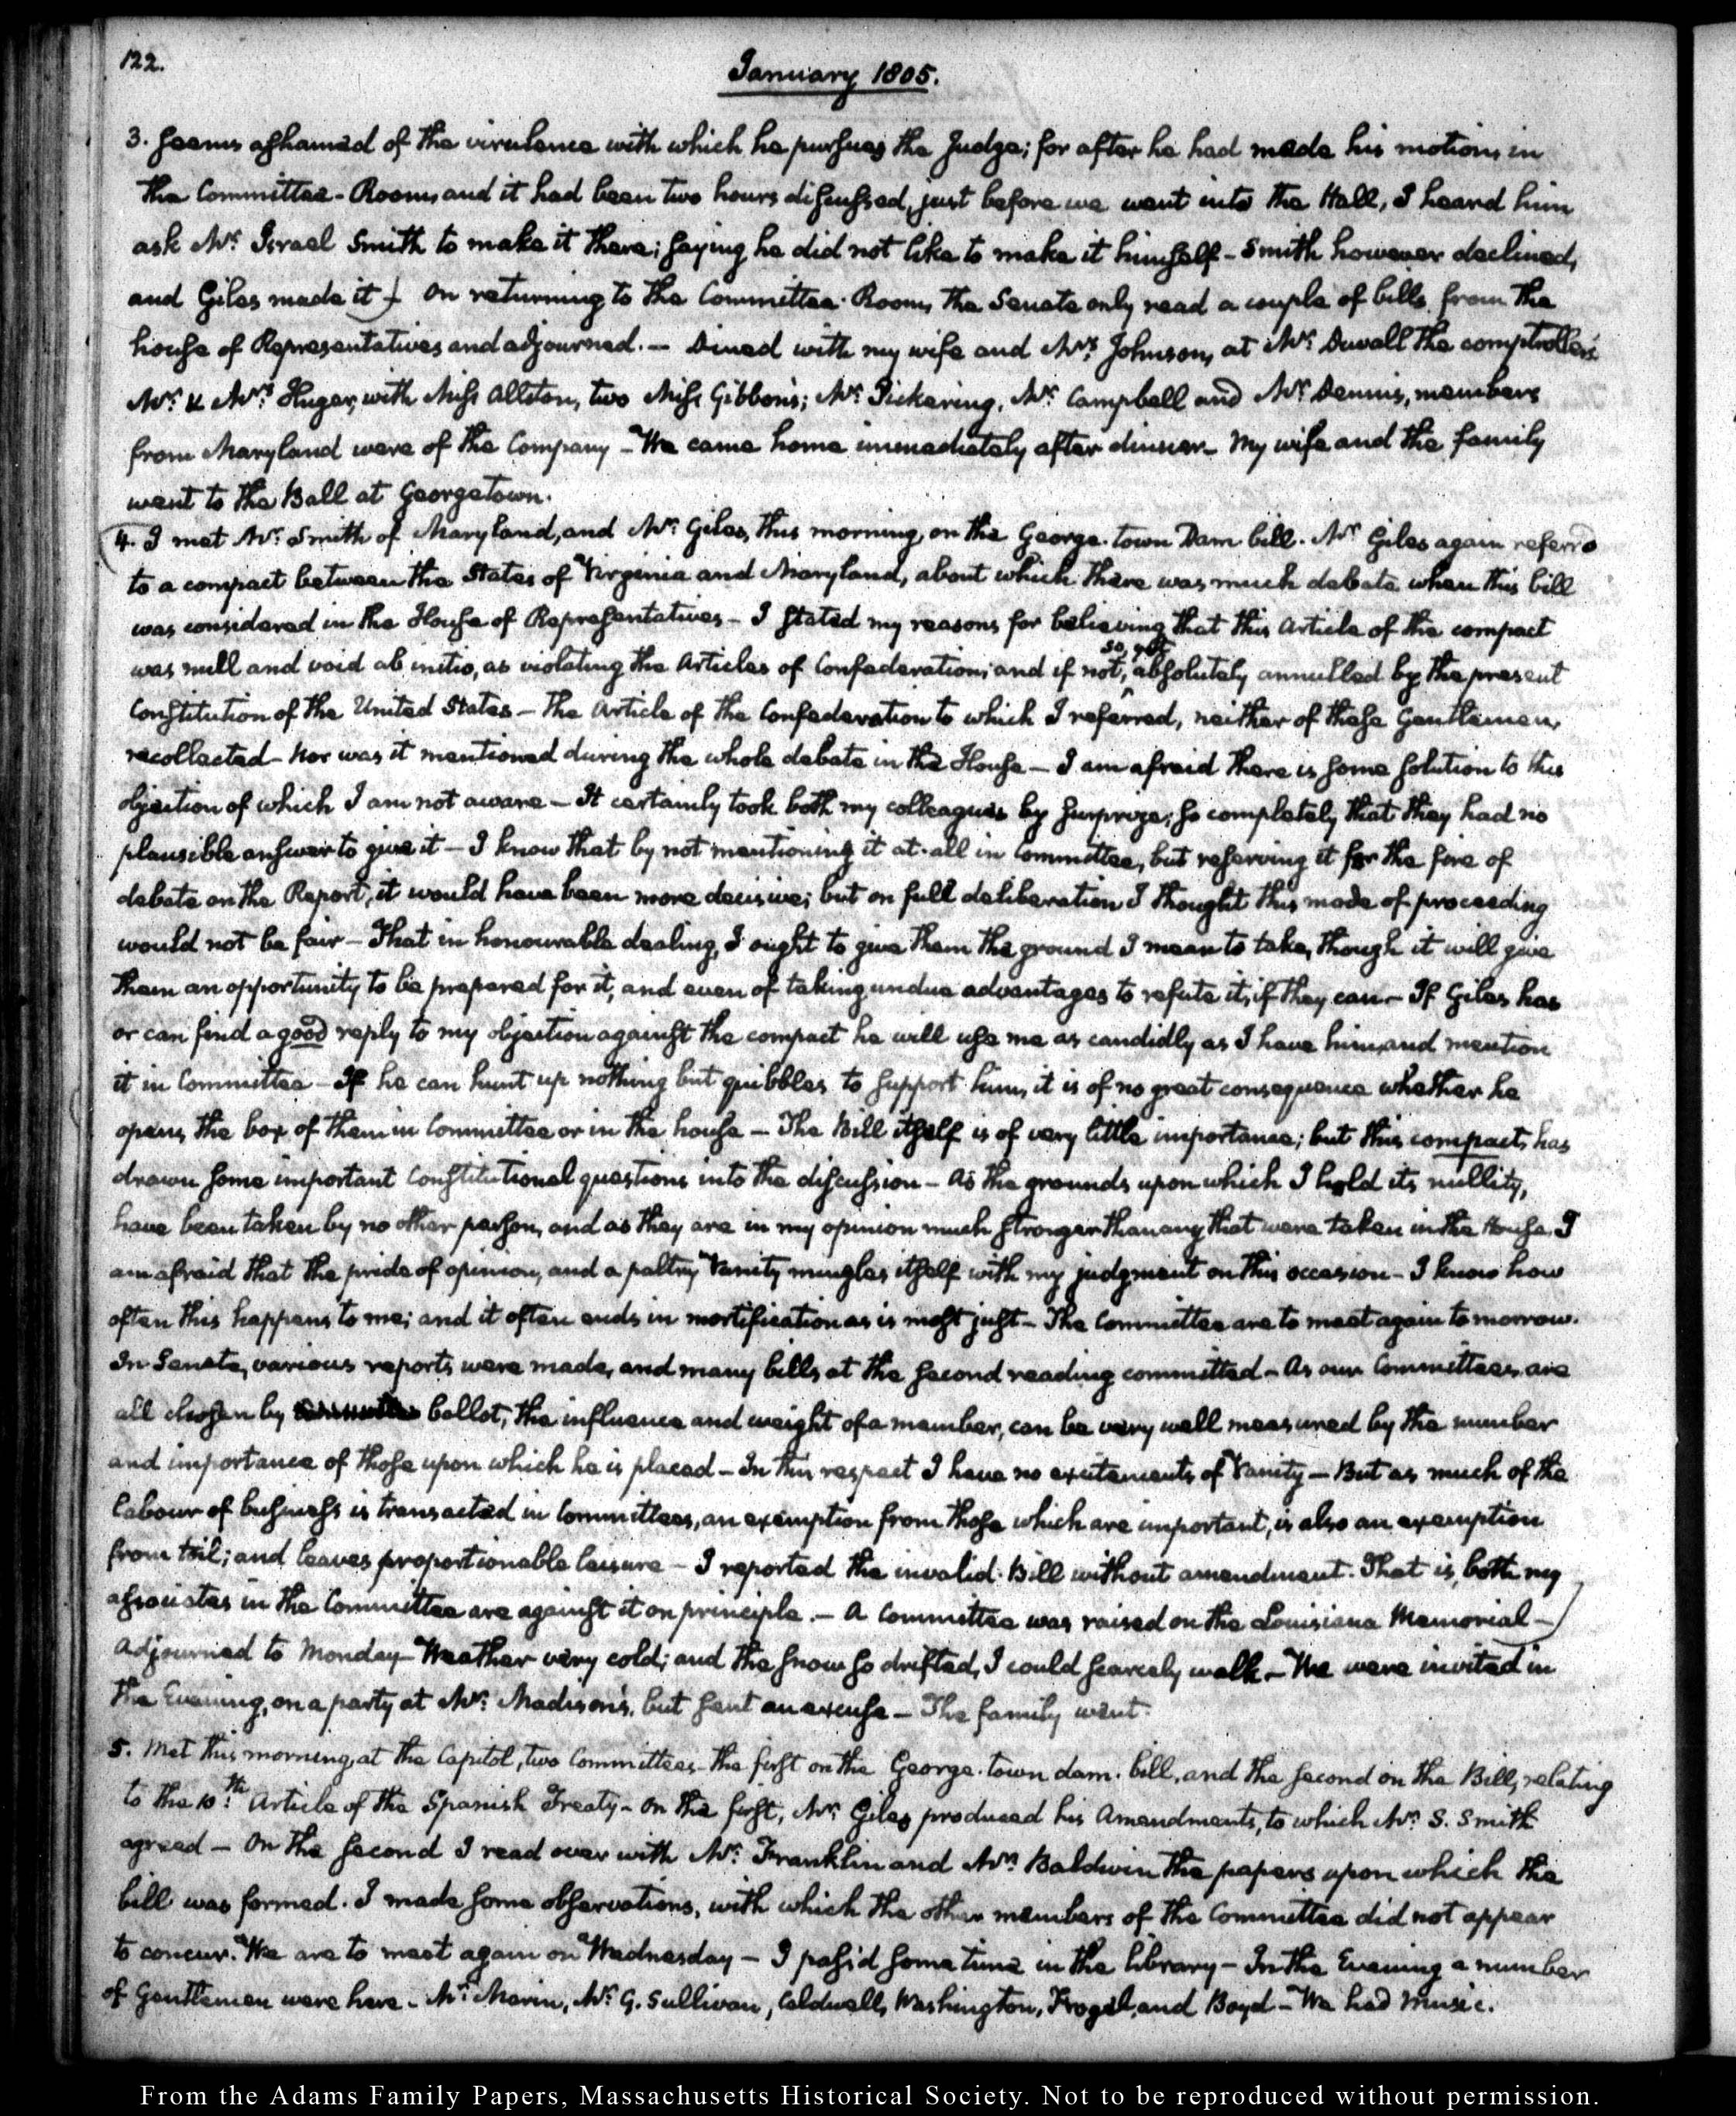 122.
January 1805.
3. seems ashamed of the virulence with which he pursues the Judge; for after he had made his motion, in
the Committee-Room, and it had been two hours discussed, just before we went into the Hall, I heard him
ask Mr. Israel Smith to make it there; saying he did not like to make it himself - Smith however declined,
and Giles made it) On returning to the Committee-Room, the Senate only read a couple of bills from the
house of Representatives and adjourned. — Dined with my wife and Mrs. Johnson, at Mr. Duvall the comptroller's
Mr. & Mrs. Huger, with Miss Allston, two Miss Gibbons; Mr. Pickering, Mr. Campbell and Mr. Dennis, members
from Maryland were of the Company - We came home immediately after dinner - My wife and the family
went to the Ball at Georgetown.
4. I met Mr. Smith of Maryland, and Mr. Giles, this morning, on the George-town Dam bill. Mr. Giles again referr'd
to a compact between the States of Virginia and Maryland, about which there was much debate when this bill
was considered in the House of Representatives - I stated my reasons for believing that this Article of the compact
was null and void ab initio, as violating the Articles of Confederation; and if not so, yet absolutely annulled by the present
Constitution of the United States - The Article of the Confederation to which I referred, neither of these Gentlemen,
recollected - Nor was it mentioned during the whole debate in the House - I am afraid there is some solution to this
objection of which I am not aware - It certainly took both my colleagues by surprize; so completely that they had no
plausible answer to give it - I know that by not mentioning it at-all in Committee, but reserving it for the fire of
debate on the Report, it would have been more decisive; but on full deliberation I thought this mode of proceeding
would not be fair - That in honourable dealing, I ought to give them the ground I mean to take, though it will give
them an opportunity to be prepared for it, and even of taking undue advantages to refute it, if they can - If Giles has
or can find a good reply to my objection against the compact he will use me as candidly as I have him, and mention
it in Committee - If he can hunt up nothing but quibbles to support him, it is of no great consequence whether he
opens the box of them in Committee or in the house - The Bill itself is of very little importance; but this compact, has
drawn some important Constitutional questions into the discussion - As the grounds upon which I hold its nullity,
have been taken by no other person, and as they are in my opinion much stronger than any that were taken in the House, I
am afraid that the pride of opinion, and a paltry Vanity mingles itself with my judgment on this occasion - I know how
often this happens to me; and it often ends in mortification as is most just - The Committee are to meet again to morrow.
In Senate, various reports were made, and many bills at the second reading committed - As our Committees are
all chosen by ballot, the influence and weight of a member, can be very well measured by the number
and importance of those upon which he is placed - In this respect I have no excitements of Vanity - But as much of the
labour of business is transacted in Committees, an exemption from those which are important, is also an exemption
from toil; and leaves proportionable leisure - I reported the invalid-Bill without amendment. That is, both my
associates in the Committee are against it on principle. - A Committee was raised on the Louisiana Memorial -)
Adjourned to Monday - Weather very cold; and the snow so drifted, I could scarcely walk. - We were invited in
the Evening, on a party at Mr. Madison's, but sent an excuse - The family went.
5. Met this morning, at the Capitol, two Committees - the first on the George-town dam-bill, and the second on the Bill, relating
to the 10th. Article of the Spanish Treaty - On the first, Mr. Giles produced his Amendments, to which Mr. S. Smith
agreed - On the second I read over with Mr. Franklin and Mr. Baldwin the papers upon which the
bill was formed. I made some observations, with which the other members of the Committee did not appear
to concur. We are to meet again on Wednesday - I pass'd some time in the library - In the Evening a number
of Gentlemen were here. Mr. Marin, Mr. G. Sullivan, Caldwell, Washington, and Boyd - We had music.
From the Adams Family Papers, Massachusetts Historical Society. Not to be reproduced without permission.